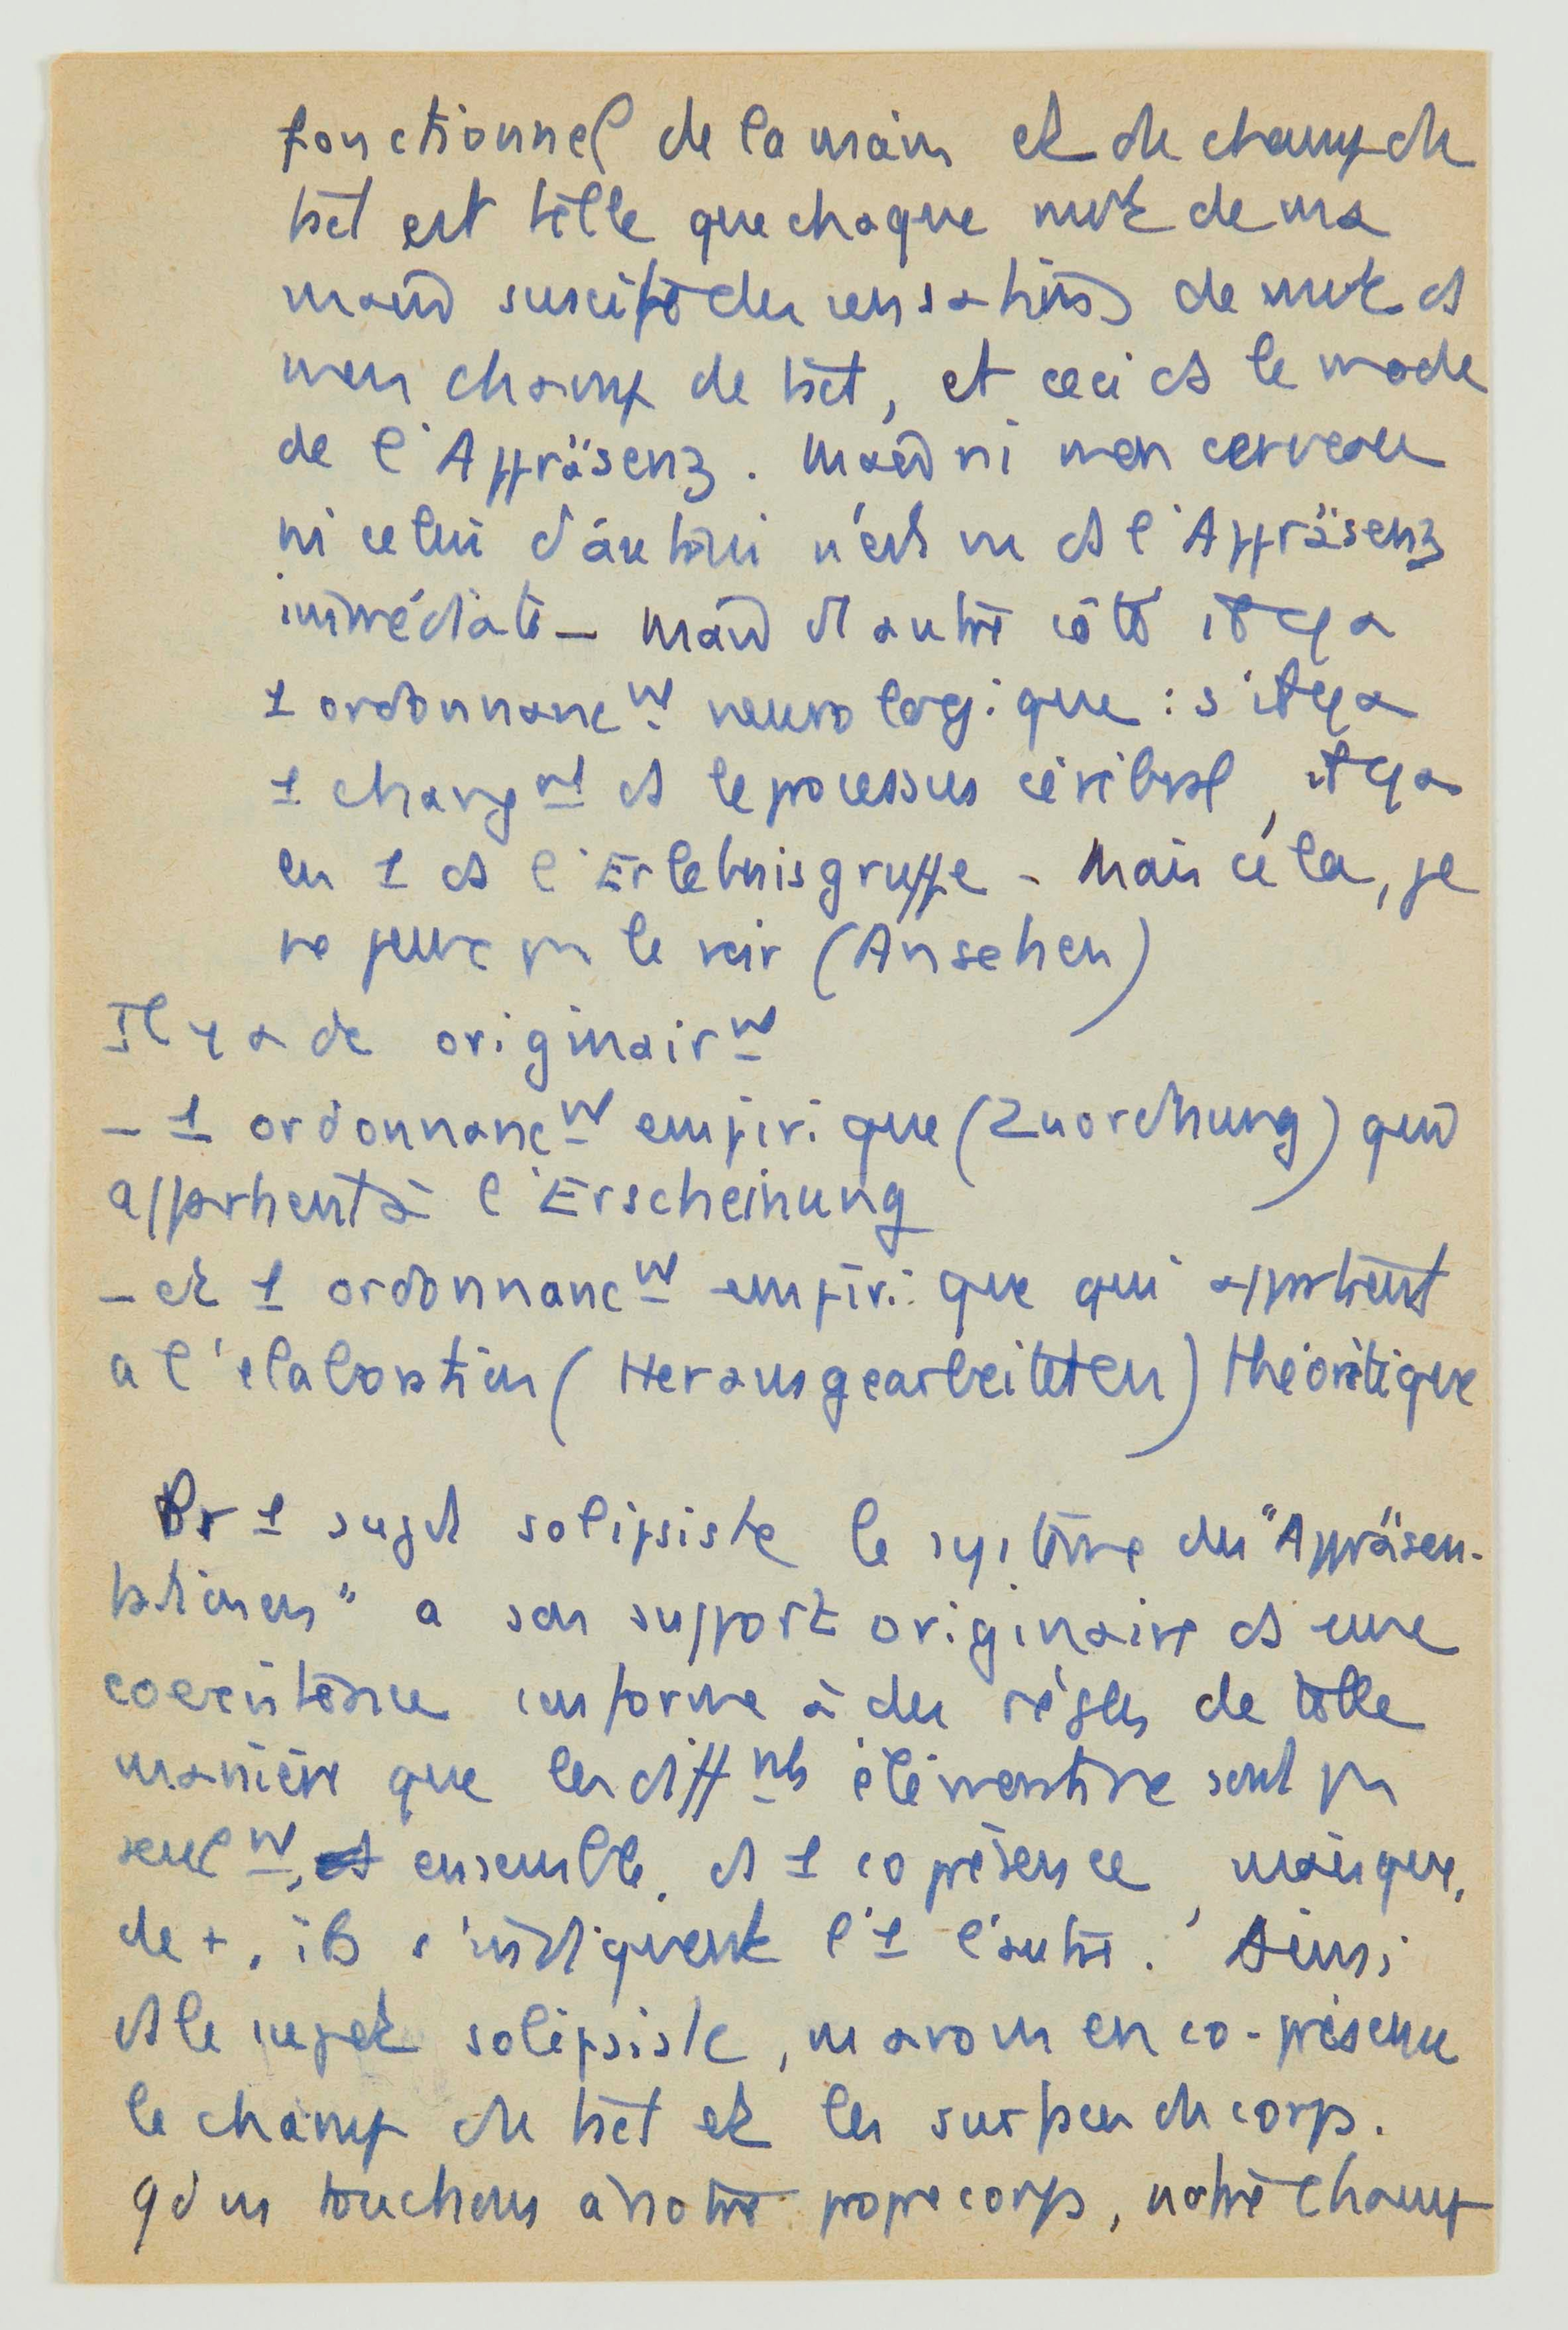 fonctionnel de la main et du champ du
tact est telle que chaque mvt de ma
main suscite des sensations de mvt ds
mon champ de tact, et ceci ds le mode
de l'Appräsenz. Mais ni mon cerveau
ni celui d'autrui n'est vu ds l'Appräsenz
immédiate — Mais d'autre côté il y a
1 ordonnancᵐᵗ neurologique : s'il y a
1 changᵐᵗ ds le processus cérébral, il y a
en 1 ds l'Erlebnisgruppe - Mais cela, je
ne peux pas le voir (Ansehen)
Il y a de originairᵐᵗ
- 1 ordonnancᵐᵗ empirique (Zuordnung) qui
appartient à l'Erscheinung
- et 1 ordonnancᵐᵗ empirique qui appartient
a l'élaboration (Herausgearbeiteten) théorétique
Pr 1 sujet solipsiste le système des "Appräsen-
tationen" a son support originaire ds une
coexistence conforme à des règles de telle
manière que les diffⁿᵗˢ sont pas
seulᵐᵗ, ensemble, ds 1 coprésence, mais que,
de +, ils s'indiquent l'1 l'autre. Ainsi
ds le sujet solipsiste, ns avons en co-présence
le champ du tact et les surfaces du corps.
qd ns touchons à notre propre corps, notre champ